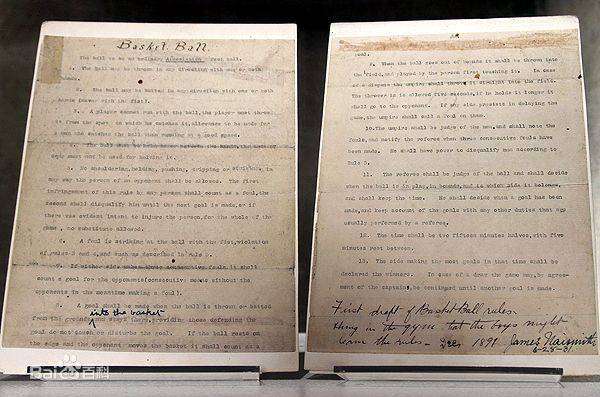 Basket Ball.
The ball to be an ordinary Association foot ball.
1. The ball may be thrown in any direction with one or both
hands.
2. The ball may be batted in any direction with one or both
hands (never with the fist).
3. A player cannot run with the ball, the player must throw
it from the spot on which he catches it, allowance to be made for
a man who catches the ball when running at a good speed.
4. The ball must be held
must not be used for holding it.
5. No shouldering, holding, pushing, tripping or striking in
any way the person of an opponent shall be allowed. The first
infringement of this rule by any person shall count as a foul, the
second shall disqualify him until the next goal is made, or if
there was evident intent to injure the person, for the whole of the
game, no substitute allowed.
6. A foul is striking at the ball with the fist, violation
of rules 3 and 4, and such as described in rule 5.
7. If either side makes three consecutive fouls, it shall
count a goal for the opponents (consecutive means without the
opponents in the meantime making a foul).
8. A goal shall be made when the ball is thrown or batted
into the basket
from the grounds and stays there, providing those defending the
goal do not touch or disturb the goal. If the ball rests on the
edge and the opponent moves the basket it shall count as a
goal.
9. When the ball goes out of bounds it shall be thrown into
the field, and played by the person first touching it. In case
of a dispute the umpire shall throw it straight into the field.
The thrower in is allowed five seconds, if he holds it longer it
shall go to the opponent. If any side persists in delaying the
game, the umpire shall call a foul on them.
10. The umpire shall be judge of the men, and shall note the
fouls, and notify the referee when three consecutive fouls have
been made. He shall have power to disqualify men according to
Rule 5.
11. The referee shall be judge of the ball and shall decide
when the ball is in play, in bounds, and to which side it belongs,
and shall keep the time. He shall decide when a goal has been
made, and keep account of the goals with any other duties that are
usually performed by a referee.
12. The time shall be two fifteen minutes halves, with five
minutes rest between.
13. The side making the most goals in that time shall be
declared the winners. In case of a draw the game may, by agree-
ment of the captains, be continued until another goal is made.
First draft of Basket Ball rules.
Hung in the gym that the boys might
learn the rules - Dec 1891 James Naismith
6-28-31
Bai 百科